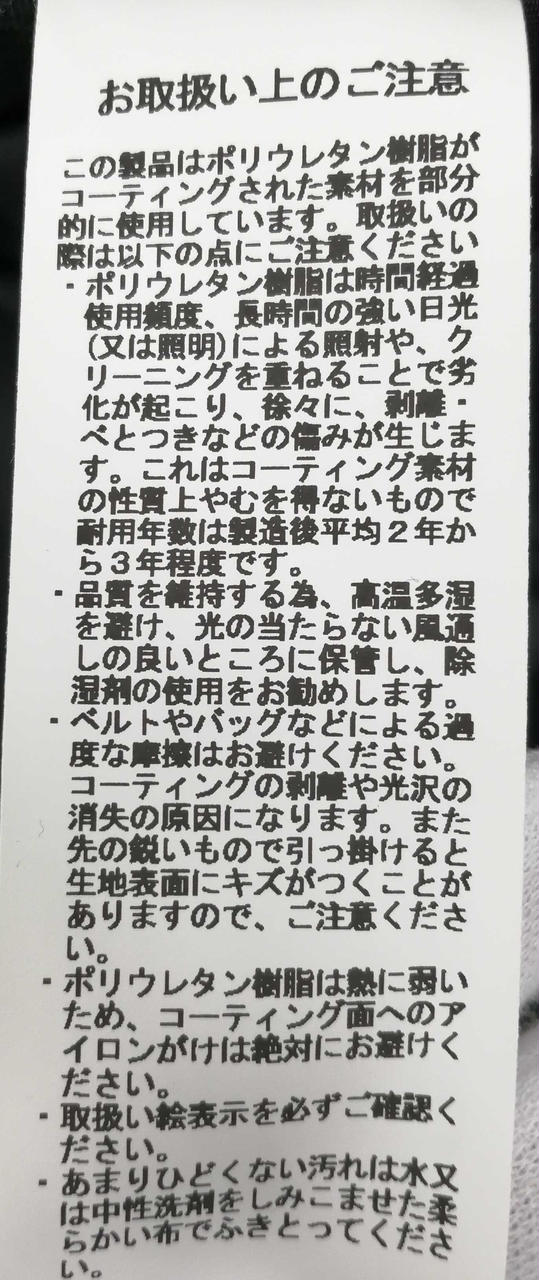 お取扱い上のご注意
この製品はポリウレタン樹脂が
コーティングされた素材を部分
的に使用しています。取扱いの
際は以下の点にご注意ください
・ポリウレタン樹脂は時間経過
使用頻度、長時間の強い日光
(又は照明)による照射や、ク
リーニングを重ねることで劣
化が起こり、徐々に、剥離・
べとつきなどの傷みが生じま
す。これはコーティング素材
の性質上やむを得ないもので
耐用年数は製造後平均２年か
ら３年程度です。
・品質を維持する為、高温多湿
を避け、光の当たらない風通
しの良いところに保管し、除
湿剤の使用をお勧めします。
・ベルトやバッグなどによる過
度な摩擦はお避けください。
コーティングの剥離や光沢の
消失の原因になります。また
先の鋭いもので引っ掛けると
生地表面にキズがつくことが
ありますので、ご注意くださ
い。
・ポリウレタン樹脂は熱に弱い
ため、コーティング面へのア
イロンがけは絶対にお避けく
ださい。
・取扱い絵表示を必ずご確認く
ださい。
・あまりひどくない汚れは水又
は中性洗剤をしみこませた柔
らかい布でふきとってくださ
い。